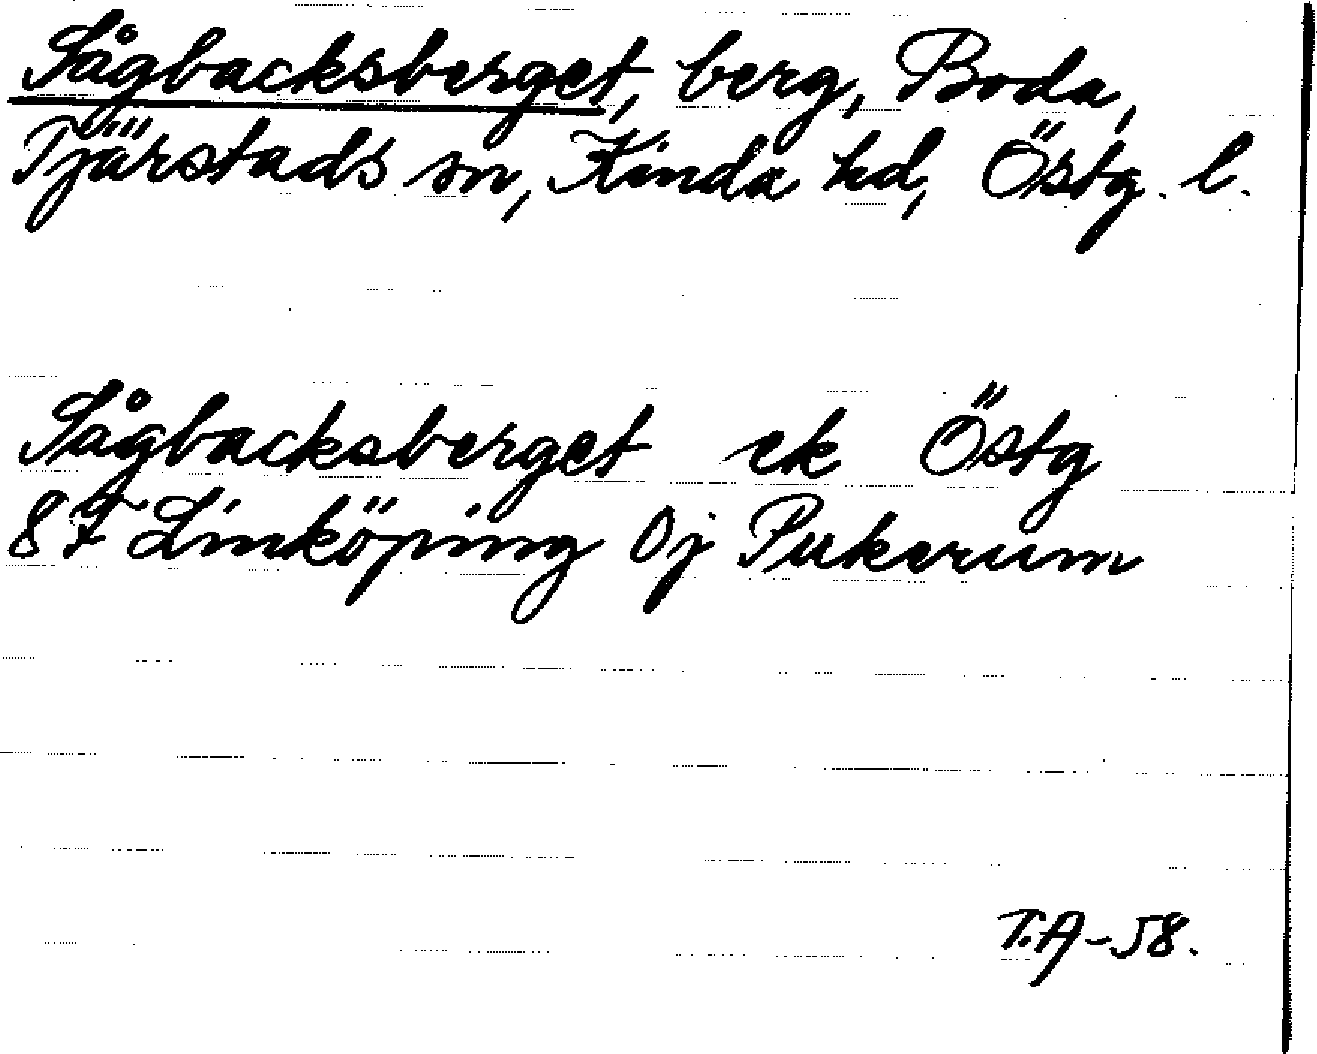 Sågbacksberget, berg, Boda,
Tjärstads sn, Kinda hd, Östg. l.
Sågbacksberget ek Östg
87 Linköping 0j Pukerum
T.A-58.